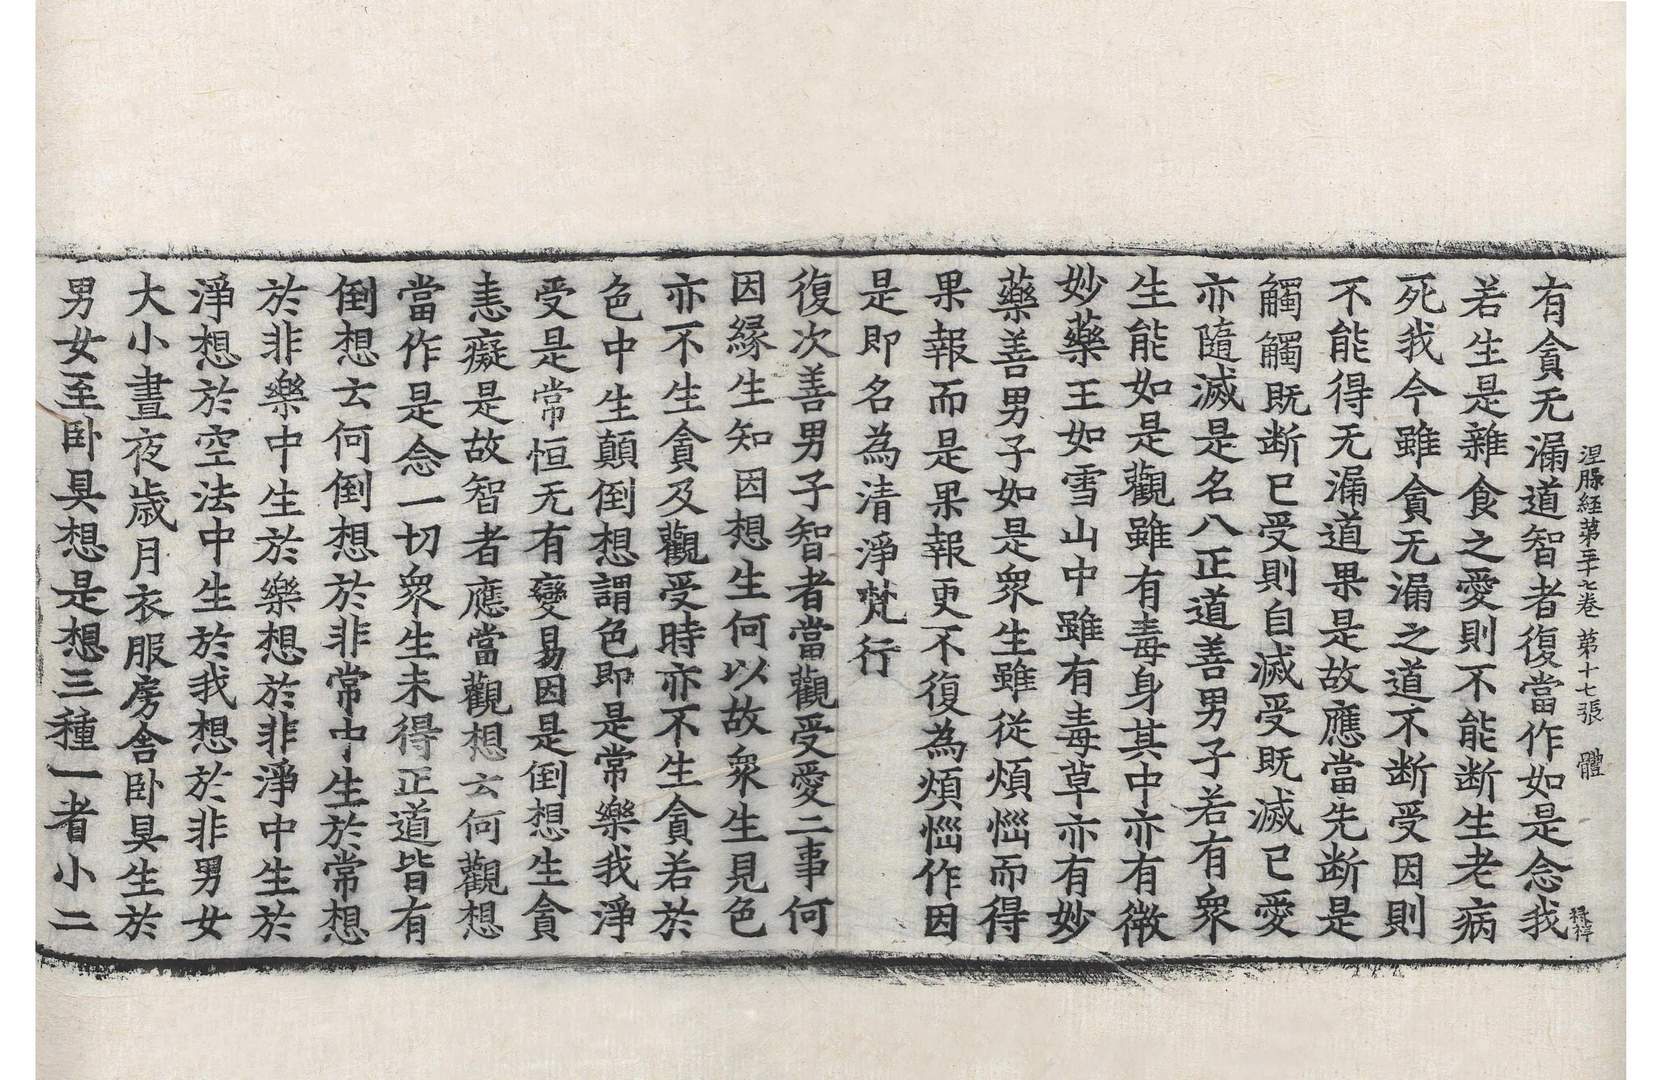 涅槃経第三十七卷 第十七張 體
有貪无漏道智者復當作如是念我
若生是雜食之愛則不能断生老病
死我今雖貪无漏之道不断受因則
不能得无漏道果是故應當先断是
觸觸既断已受則自滅受既滅已愛
亦隨滅是名八正道善男子若有衆
生能如是觀雖有毒身其中亦有微
妙藥王如雪山中雖有毒草亦有妙
藥善男子如是衆生雖從煩惱而得
果報而是果報更不復為煩惱作因
是即名為清淨梵行
復次善男子智者當觀受愛二事何
因縁生知因想生何以故衆生見色
亦不生貪及觀受時亦不生貪若於
色中生顛倒想謂色即是常樂我淨
受是常恒无有變易因是倒想生貪
恚癡是故智者應當觀想云何觀想
當作是念一切衆生未得正道皆有
倒想云何倒想於非常中生於常想
於非樂中生於樂想於非淨中生於
淨想於空法中生於我想於非男女
大小晝夜歳月衣服房舍卧具生於
男女至卧具想是想三種一者小二